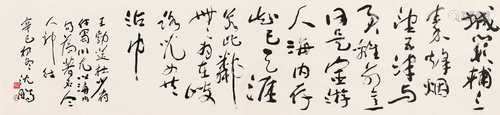 城阙辅三
秦烽烟
望五津与
君离别意
同是宦游
人海内存
知己天涯
若比鄰
無为在歧
路儿女共
沾巾
王勃送杜少府
任蜀川尤以海内
句为著名令
人神往
辛巳初冬沈鹏